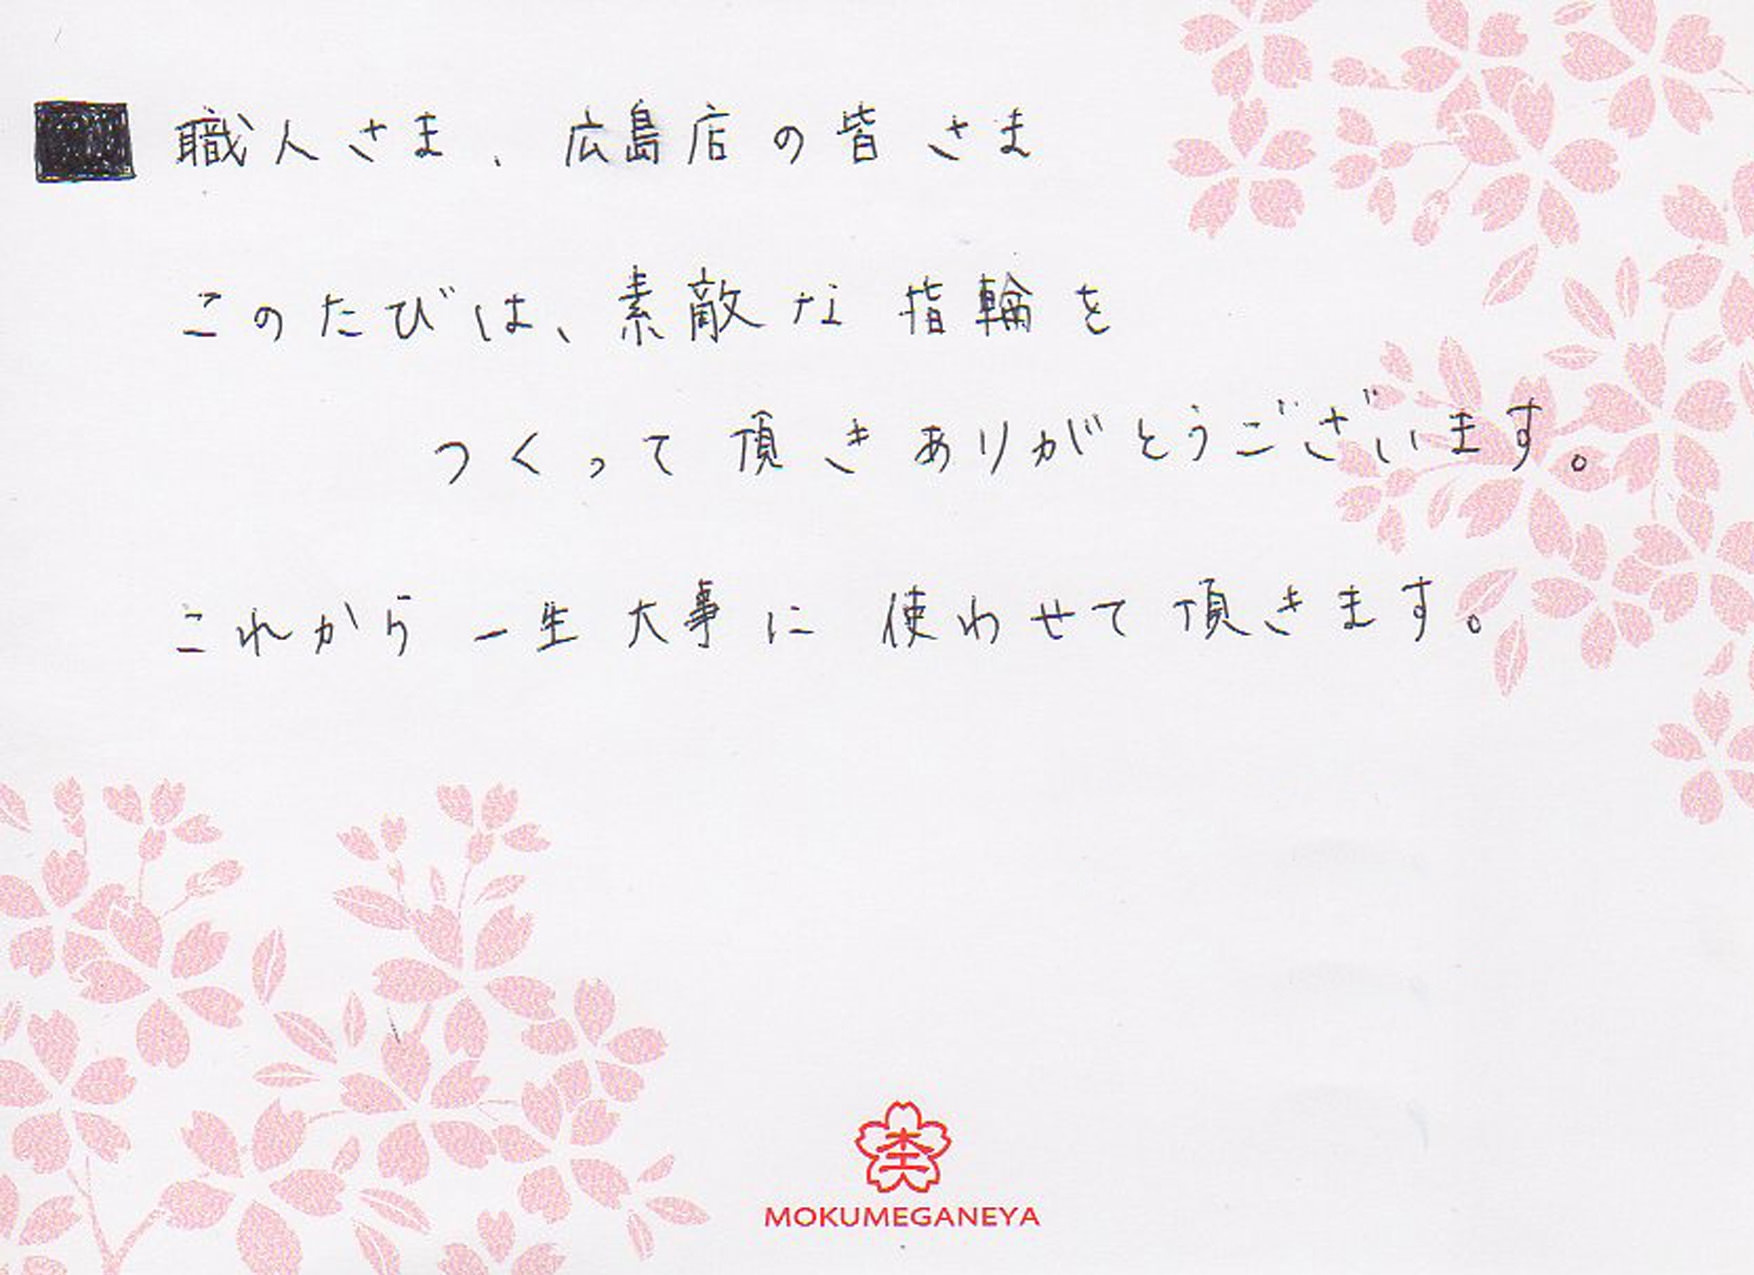 職人さま、広島店の皆さま
このたびは、素敵な指輪を
つくって頂きありがとうございます。
これから一生大事に使わせて頂きます。
杢
MOKUMEGANEYA